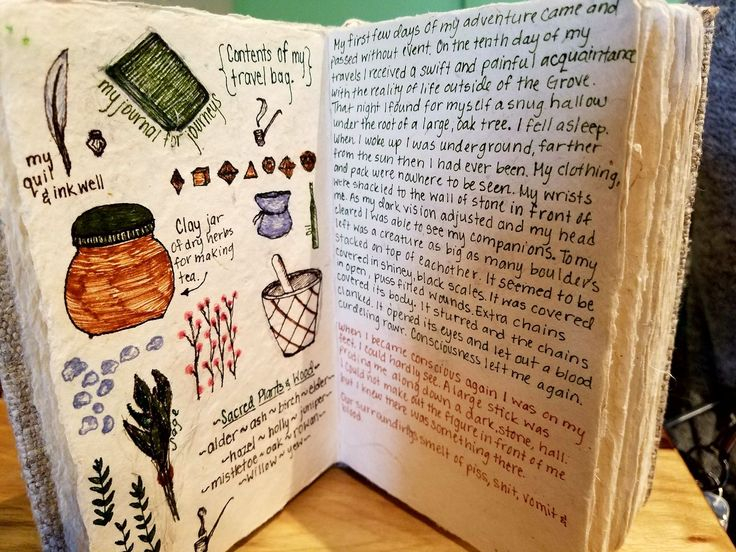 {Contents of my
travel bag.}
my journal for journeys
my
quil
& inkwell
Clay jar
of dry herbs
for making
tea.
sage
~Sacred Plants & Wood~
~alder~ash~birch~elder~
~hazel~holly~juniper~
mistletoe~oak~rowan~
~willow~yew~
My first few days of my adventure came and
passed without event. On the tenth day of my
travels I received a swift and painful acquaintance
with the reality of life outside of the Grove.
That night I found for myself a snug hallow
under the root of a large, oak tree. I fell asleep.
When I woke up I was underground, farther
from the sun then I had ever been. My clothing,
and pack were nowhere to be seen. My wrists
were shackled to the wall of stone in front of
me. As my dark vision adjusted and my head
cleared I was able to see my companions. To my
left was a creature as big as many boulders
stacked on top of eachother. It seemed to be
covered in shiney, black scales. It was covered
in open, puss filled wounds. Extra chains
covered its body. It sturred and the chains
clanked. It opened its eyes and let out a blood
curdeling rawr. Consciousness left me again.
When I became conscious again I was on my
feet. I could hardly see. A large stick was
proding me along down a dark, stone, hall.
I could not make out the figure in front of me
but I knew there was something there.
Our surroundings smelt of piss, shit, vomit &
blood